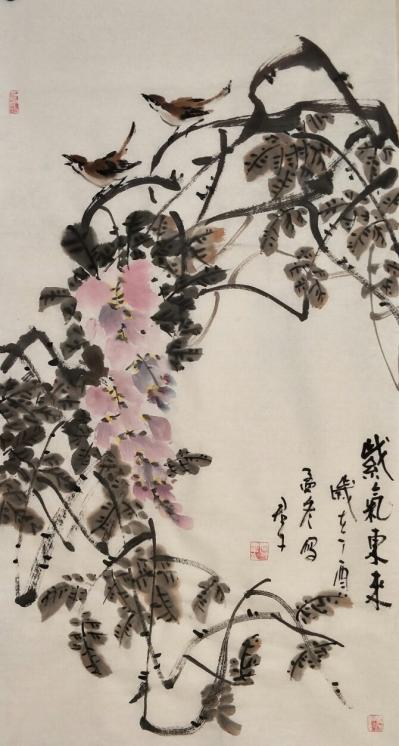 紫氣東來
歲在丁酉
孟冬写